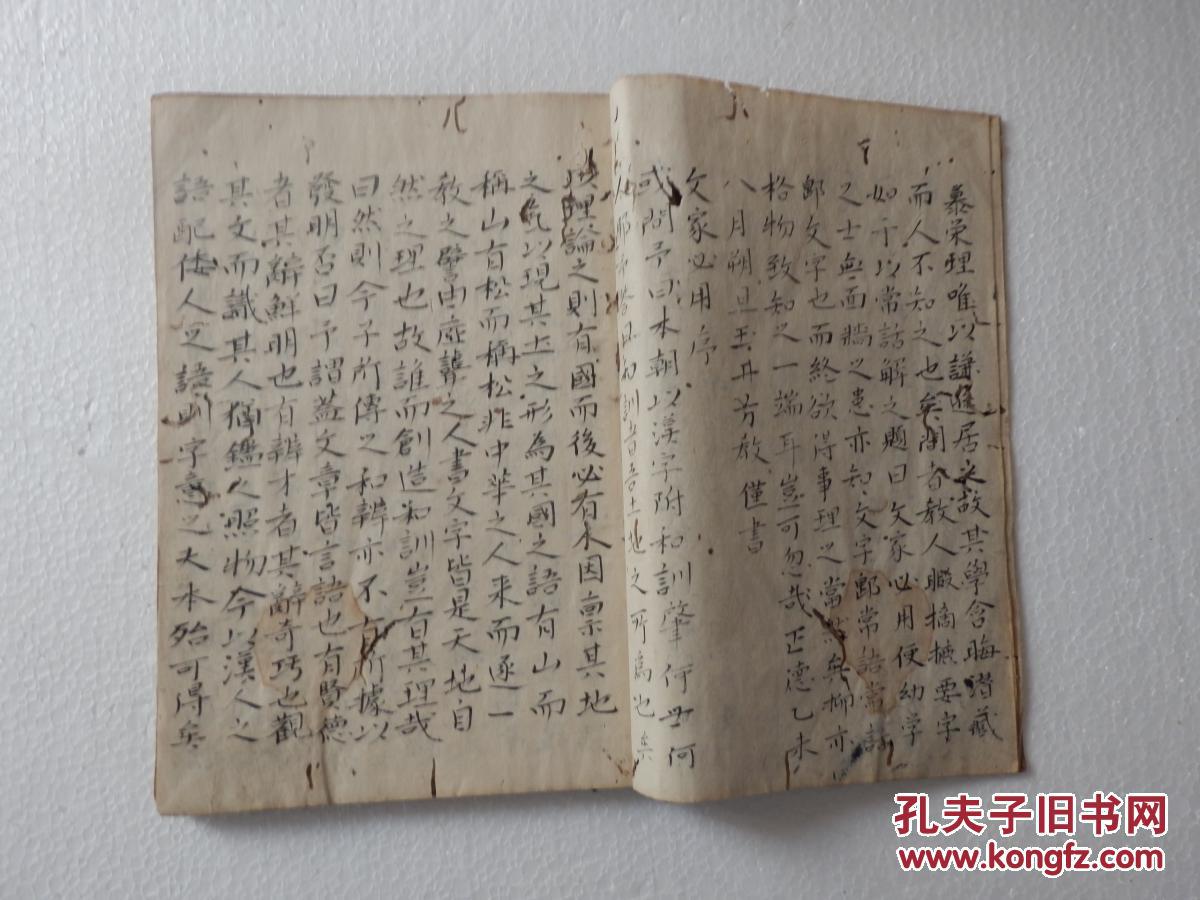 慕栄理唯以謙退居之故其學含晦潜藏
而人不知之也矣聞者教人暇摘摭要字
如干以常話解之題曰文家必用便幼学
之士無面牆之患亦知文字鄙常語常話
鄙文字也而終欲得事理之當然矣抑亦
格物致知之一端耳豈可忽哉正德乙未
八月朔旦 芳啟僅書
文家必用序
或問予曰本朝以漢字附和訓肇何世何
人耶 答曰和訓者吾土地之所為也矣
理論之則有國而後必有木因稟其地
之氣以現其土之形為其國之語有山而
稱山有松而稱松非中華之人来而逐一
教之譬由虚聾之人書文字皆是天地自
然之理也故誰而創造和訓豈有其理哉
曰然則今子所傳之和辨亦不有所據以
發明否曰予謂蓋文章皆言語也有賢德
者其辭鮮明也有辨才者其辭奇巧也觀
其文而識其人猶鑑之照物今以漢人之
語配倭人之語 字意之大本殆可得矣
孔夫子旧书网
www.kongfz.com